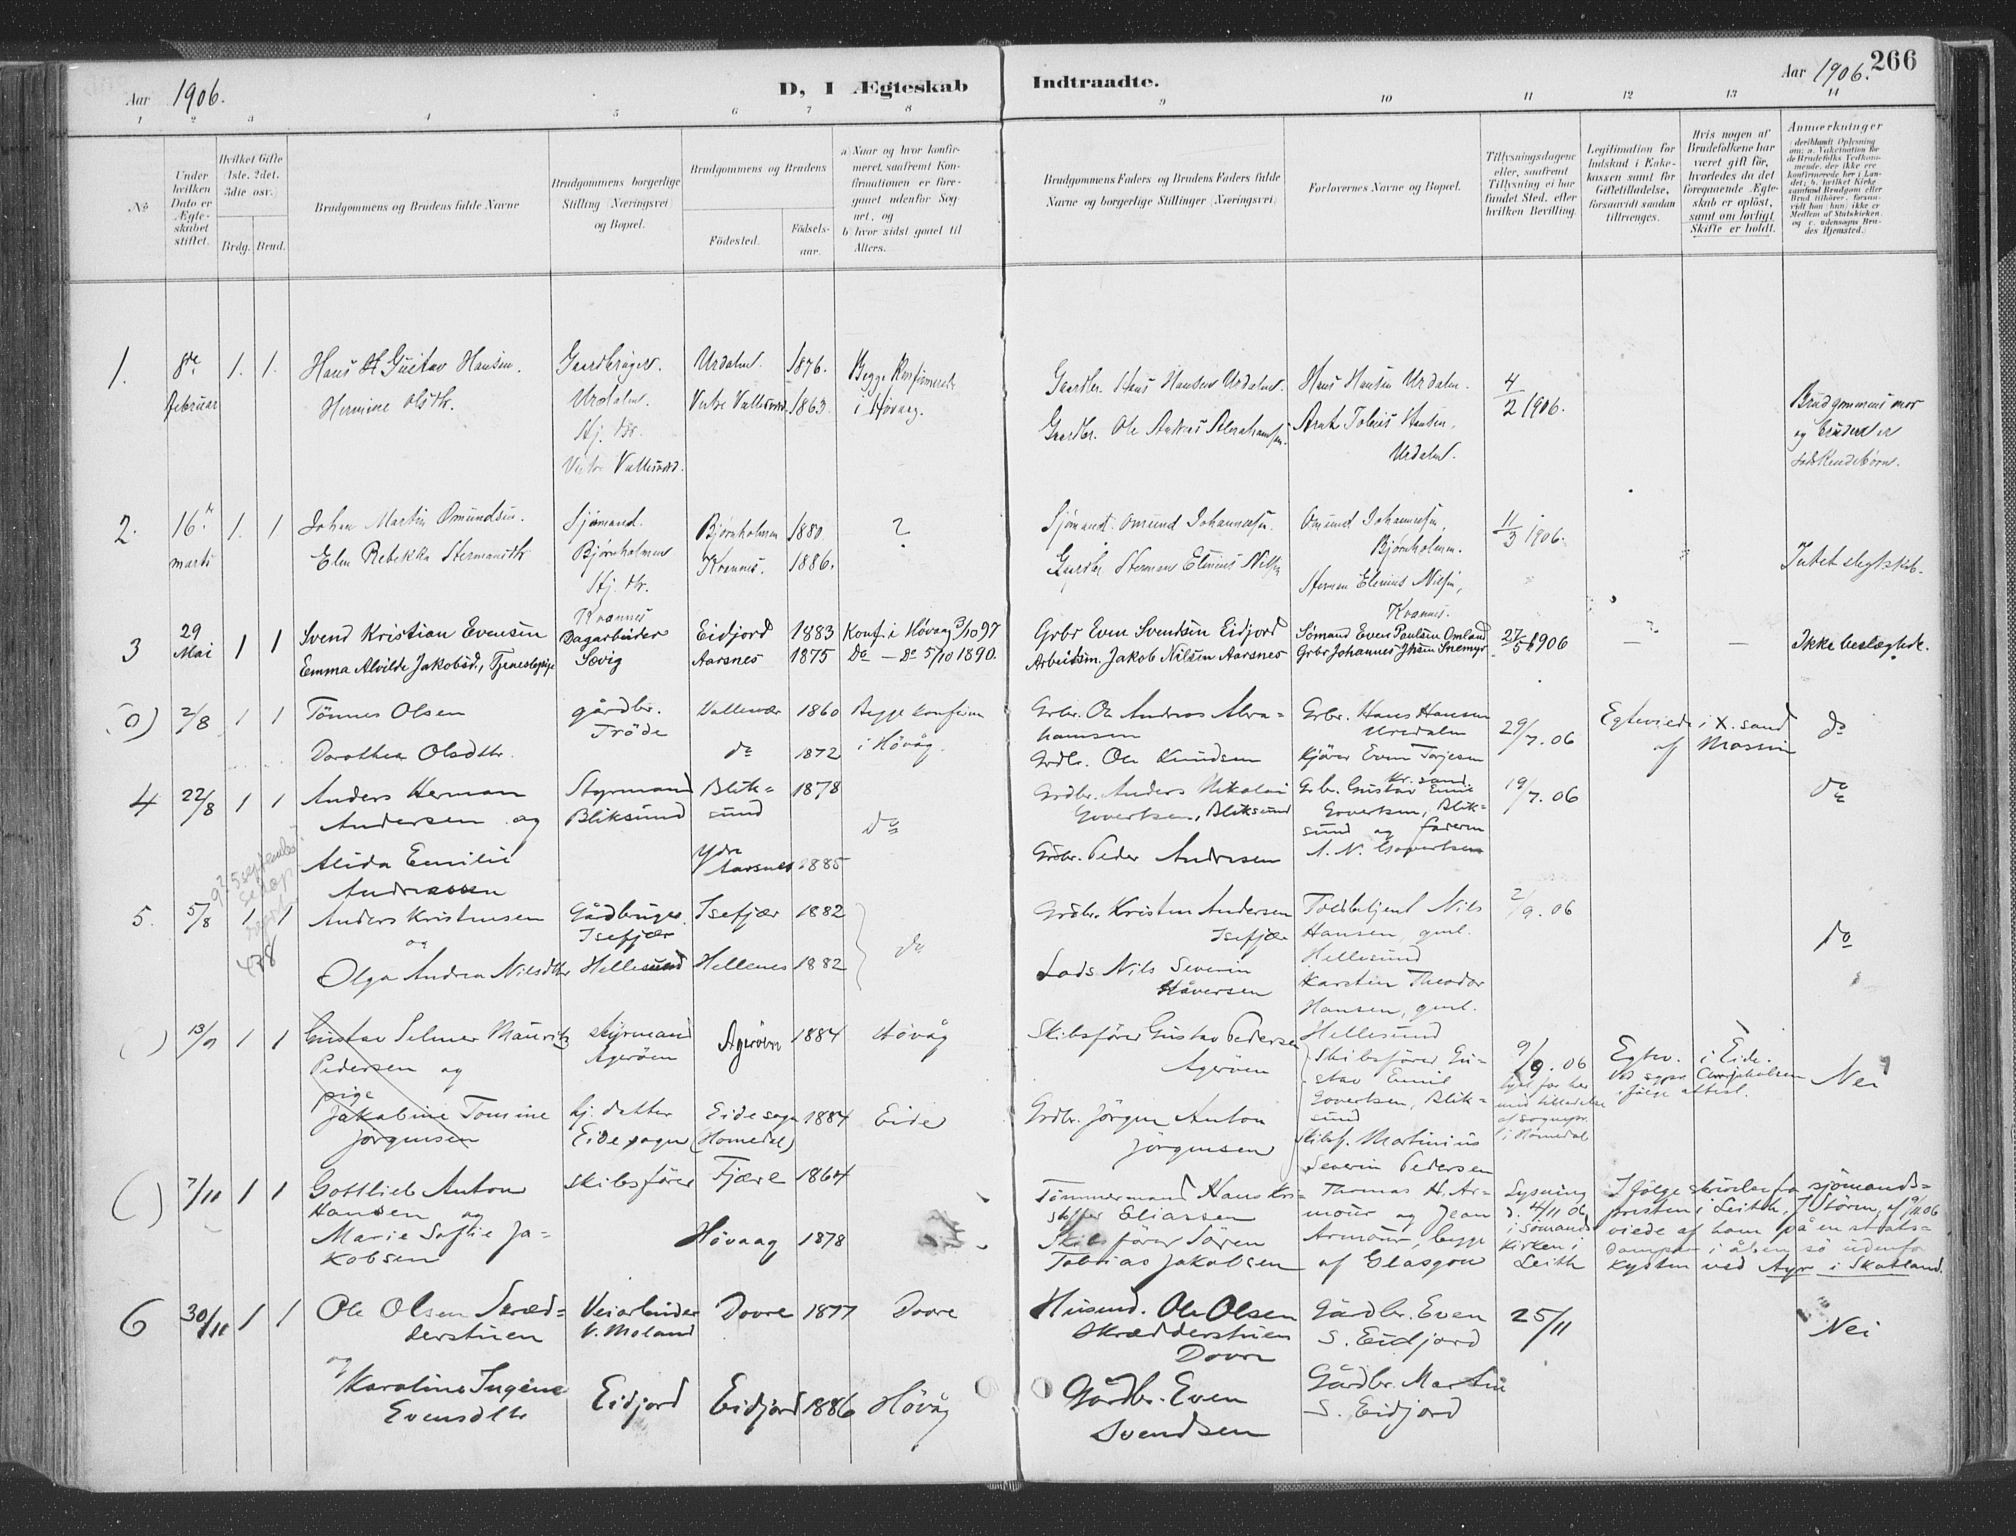 Aar 1906.
D, I Ægteskab Indtraadte.
Aar 1906. 266
1 2 3 4 5 6 7 8 9 10 11 12 13 14
No
Under hvilken Dato er Ægteskabet stiftet.
Hvilket Gifte (1ste. 2det. 3die osv.)
Brdg. Brud.
Brudgommens og Brudens fulde Navne
Brudgommens borgerlige Stilling (Næringsvei) og Bopæl.
Brudgommens og Brudens
Fødested.
Fødselsaar.
a) Naar og hvor konfirmeret, saafremt Konfirmationen er foregaaet udenfor Sognet, og
b) hvor sidst gaaet til Alters.
Brudgommens Faders og Brudens Faders fulde Navne og borgerlige Stillinger (Næringsvei)
Forlovernes Navne og Bopæl.
Tillysningsdagene eller, saafremt Tillysning ei har fundet Sted, efter hvilken Bevilling.
Legitimation for Indskud i Enkekassen samt for Giftetilladelse, forsaavidt saadan tiltrænges.
Hvis nogen af Brudefolkene har været gift før, hvorledes da det foregaaende Ægteskab er opløst, samt om lovligt Skifte er holdt.
Anmærkninger
1. 8de februar 1. 1. Hans Gustav Hansen. Gaardbruger. Urdalen. 1876. Begge konfirmerede i Høvaag.
Hermine Olsdtr. Urdalen. Vestre Vallesværd. 1863.
Hj. dtr. Vestre Vallesværd.
Gaardbr. Hans Hansen Urdalen. Hans Hansen Urdalen. 4/2 1906.
Gaardbr. Ole Andreas Abrahamsen. Arnt Tobias Hansen, Urdalen.
Brudgommens mor og bruden er sødskendebørn.
2. 16de marts 1. 1 Johan Martin Omundsen. Sjømand. Bjørnholmen 1880. ?
Elen Rebekka Stermansdtr. Bjørnholmen Krannes. 1886.
Hj. dtr. Krannes
Sjømand. Omund Johannessen. Omund Johannessen, Bjørnholmen. 11/3 1906.
Gaardbr Sterman Elenius Nilsen Sterman Elenius Nilsen, Krannes.
Intet slegtskab.
3 29 Mai 1 1 Svend Kristian Evensen Dagarbeider Eidjord 1883 Konf. i Høvaag 3/10 97
Emma Alvilde Jakobsd., Tjenestepige Søvig Aarsnes 1875 Do — Do 5/10 1890.
Grbr Even Svendsen Eidjord Sømand Even Paulsen Omland 27/5 1906
Arbeidsm. Jakob Nilsen Aarsnes Grbr Johannes Jhsen Snemyr
Ikke beslægtede.
(0) 2/8 1 1 Tönnes Olsen gårdbr. Vallesvær 1860 Begge konfirm i Høvåg.
Dorothea Olsdtr. Tröde do 1872
Grbr. Ole Andreas Abrahamsen Grbr. Hans Hansen Uredalen 29/7. 06
Grdbr. Ole Knudsen Kjörer Even Torjesen Kr. sand
Egteviede i X. sand af Mossin do
4 22/8 1 1 Anders Herman Andersen og Styrmand Bliksund Bliksund 1878 do
Alida Emilie Andreassen Ydre Aarsnes 1885
Grdbr. Anders Nikolai Govertsen, Bliksund Grbr. Gustav Emil Govertsen, Bliksund og faderen A. N. Govertsen 19/7. 06 do
Grdbr. Peder Andresen
5. 5/8 1 1 Anders Kristensen Gårdbruger Isefjær Isefjær 1882 do
og
Olga Andrea Nilsdtr Hellesund Hellenes 1882
9? 5 september
438
Grdbr. Kristen Andersen Isefjær Toldbetjent Nils Hansen, gml. Hellesund 2/9. 06 do
Lods Nils Severin Håversen Karsten Theodor Hansen, gml. Hellesund
( ) 13/9 1 1 Gustav Selmer Mauritz Pedersen og styrmand Agerøen Agerøen 1884 Høvåg
pige Jakobine Tomine Jörgensen hj. datter Eide sogn Eide sogn (Homedal) 1884 Eide
Skibsfører Gustav Pedersen Agerøen Skibsfører Gustav Emil Govertsen, Bliksund 9/9. 06
lyst for her med tilladelse af sognepr. i Homedal
Grdbr. Jörgen Anton Jörgensen Skibsf. Martinius Severin Pedersen
Egtev. i Eide. ifølge attest. Nei
( ) 7/11 1 1 Gottlieb Anton Hansen og skibsfører Fjære 1864
Marie Sofie Jakobsen Høvaag 1878
Tömmermand Hans Kristoffer Eliassen Thomas H. Armour og Jean Armour, begge af Glasgow
Skibsfører Sören Tobias Jakobsen
Lysning d. 4/11 06 i Sømandskirken i Leith
I følge skrivelse fra sjömandspresten i Leith, J. Stören, af 9/11 06 viede af ham på en stratsdamper i åben sö udenfor kysten ved Ayr i Skotland.
6 30/11 1 1 Ole Olsen Skrædderstuen Veiarbeider V. Moland Dovre 1877 Dovre
og Karoline Ingine Evensdtr Eidjord Eidjord 1886 Høvåg
Husmd. Ole Olsen Skrædderstuen Dovre Gårdbr. Even S. Eidjord 25/11 Nei
Gårdbr. Even Svendsen Gårdbr. Martin S. Eidjord